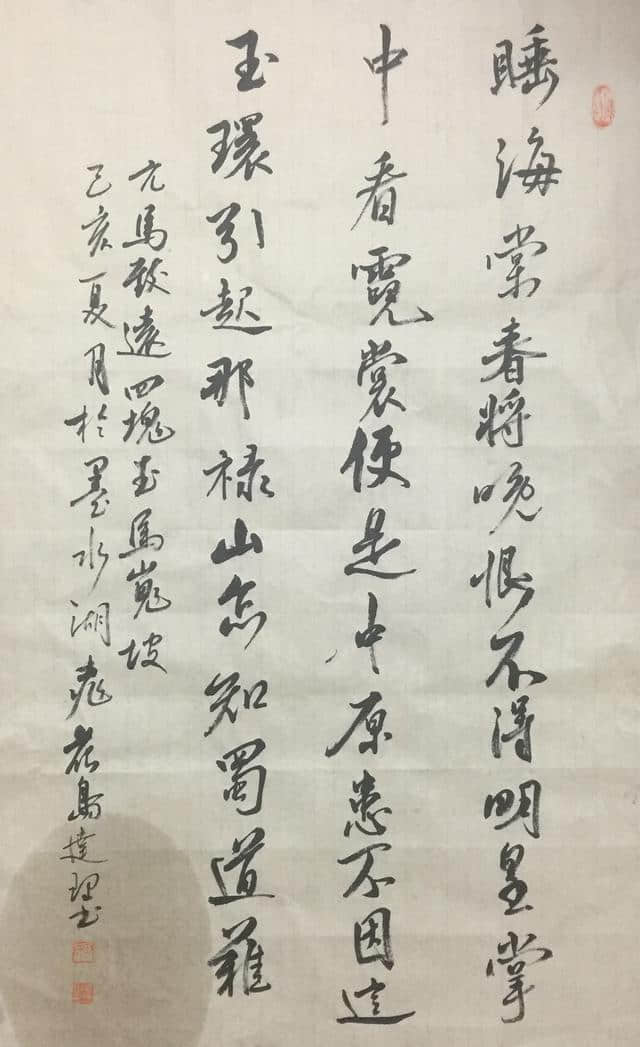 睡海棠春将晚恨不得明皇掌
中看霓裳便是中原患不因這
玉環引起那禄山怎知蜀道難
元馬致遠四塊玉馬嵬坡
己亥夏月於墨水湖